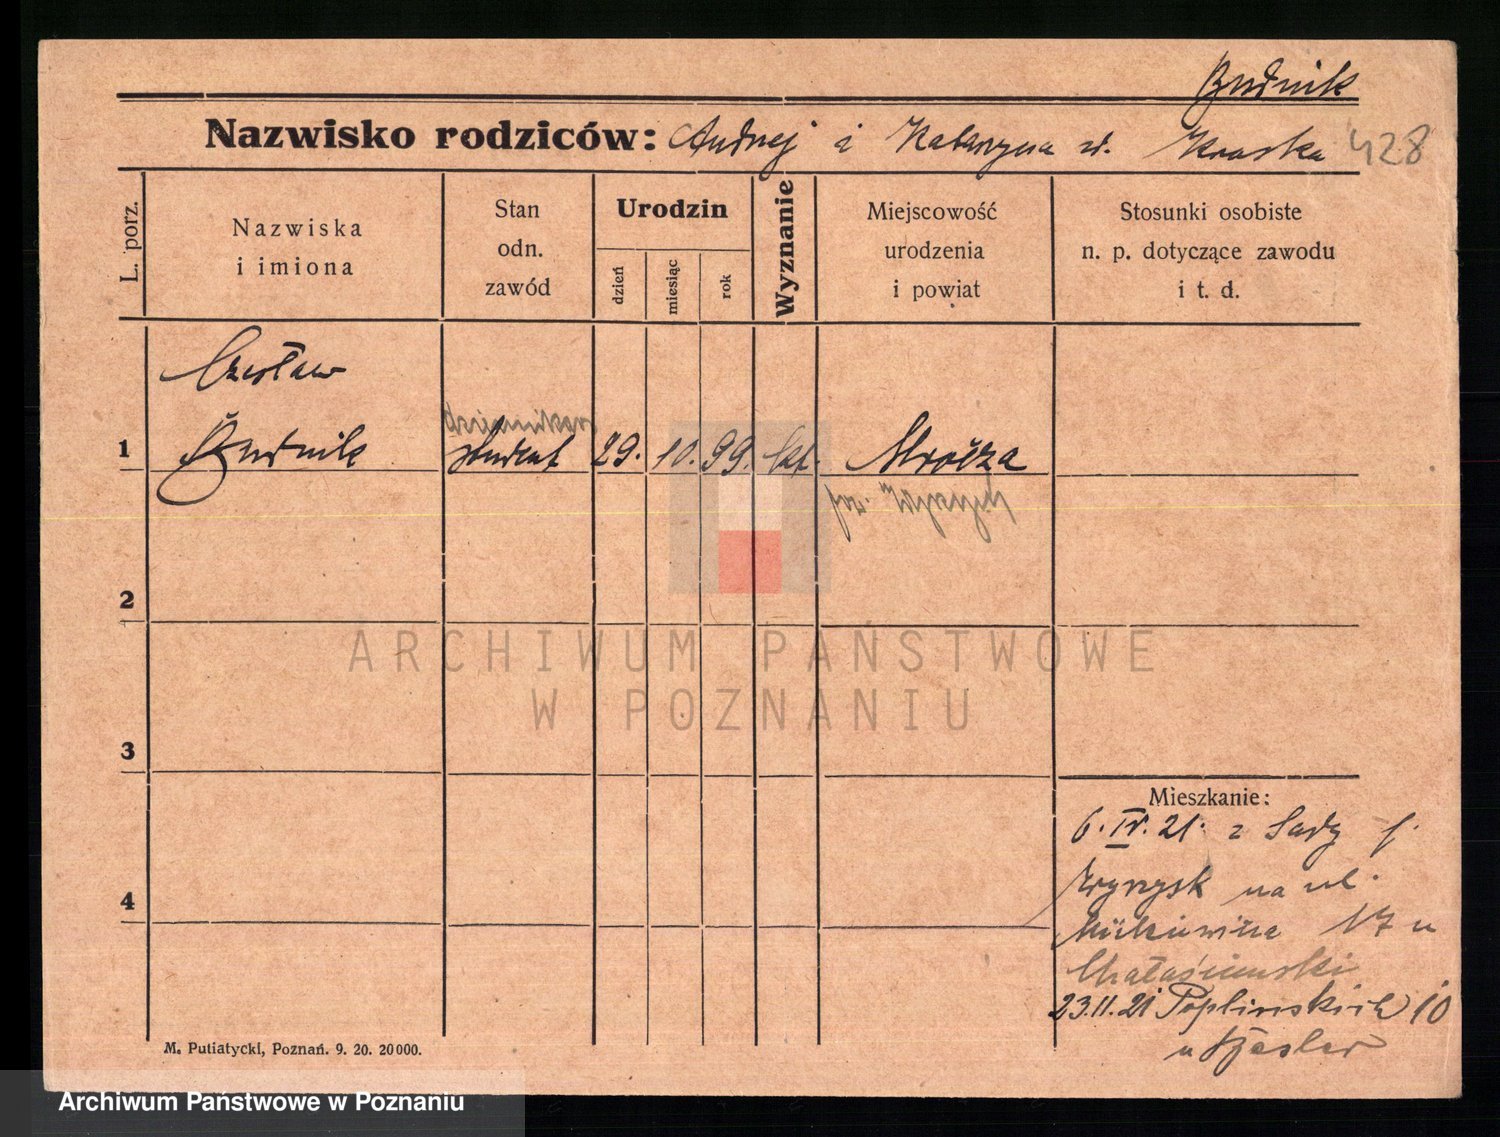 Budnik
Nazwisko rodziców: Andrzej i Katarzyna zd. Kraska 428
L. porz.
Nazwiska
i imiona
Stan
odn.
zawód
Urodzin
dzień
miesiąc
rok
Wyznanie
Miejscowość
urodzenia
i powiat
Stosunki osobiste
n. p. dotyczące zawodu
i t. d.
Czesław
dziennikarz
1 Budnik student 29. 10. 99. kt. Mrocza
pow. Wyrzysk
2
ARCHIWUM PAŃSTWOWE
W POZNANIU
3
Mieszkanie:
6. IV. 21. z Sady p.
Wyrzysk na ul.
17 u
4
23.11.21 Poplińskich 10
u
M. Putiatycki, Poznań. 9. 20. 20000.
Archiwum Państwowe w Poznaniu